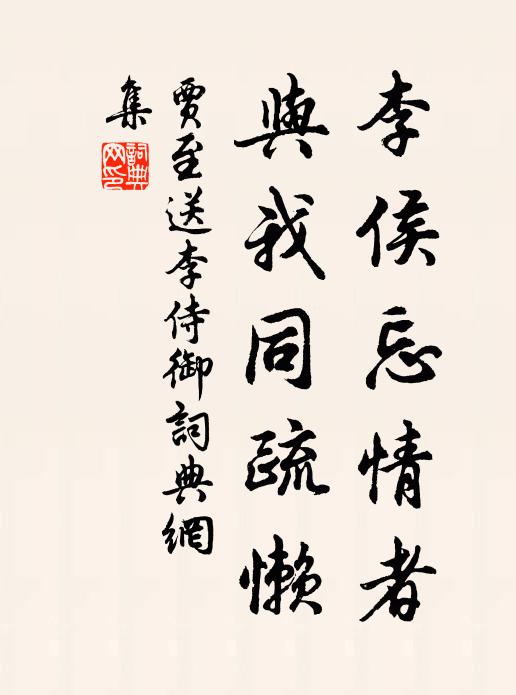 李侯忘情者
與我同疏懶
賈至送李侍御詞典網
集
詞典網印